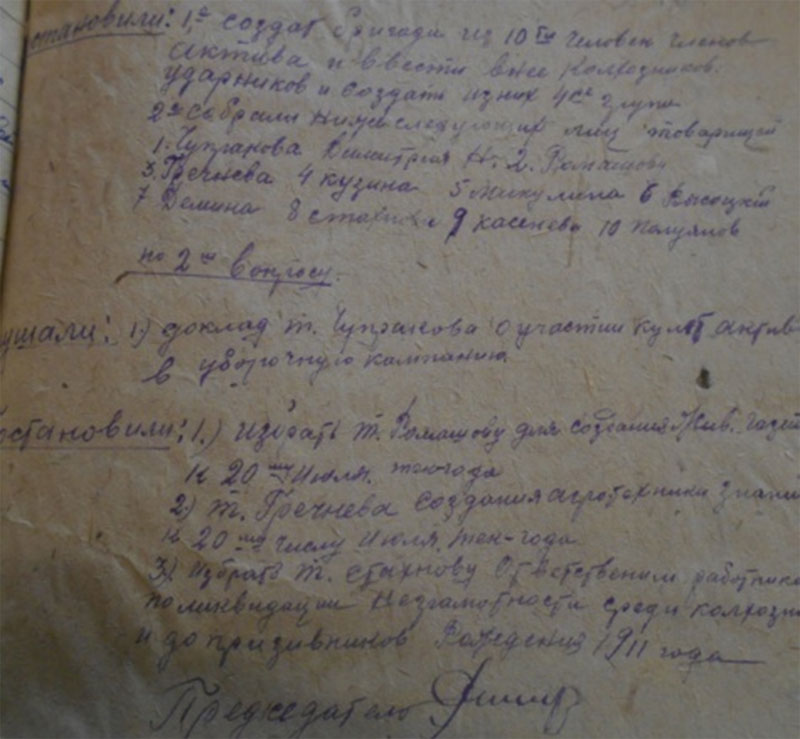 становили: 1.е создат бригади из 10ти человек членов
актива и ввести внее колхозников.
ударников и создать изних 4ре групи
2е собрали нижеследующих лиц товарищей
1. Чупганова Димитрия Н. 2. Ромашову
3. Гречнева 4 кузина 5 Микулина 6 Высоцкий
7 Демина 8 9 касенева 10 Полуялов
по 2му вопросу.
ушали: 1.) доклад т. Чупганова о участии культ актив
в уборочную кампанию
остановили: 1.) избрать т. Ромашову для создания Жив. газет
к 20му Июля. тек-года
2) т. Гречнева создания агротехники знани
к 20му числу Июля. тек-года
3) избрать т. стахнову Ответственим работнико
по ликвидации Незгамотности среди колхозни
и до призивников Рождения 1911 года
Председатель